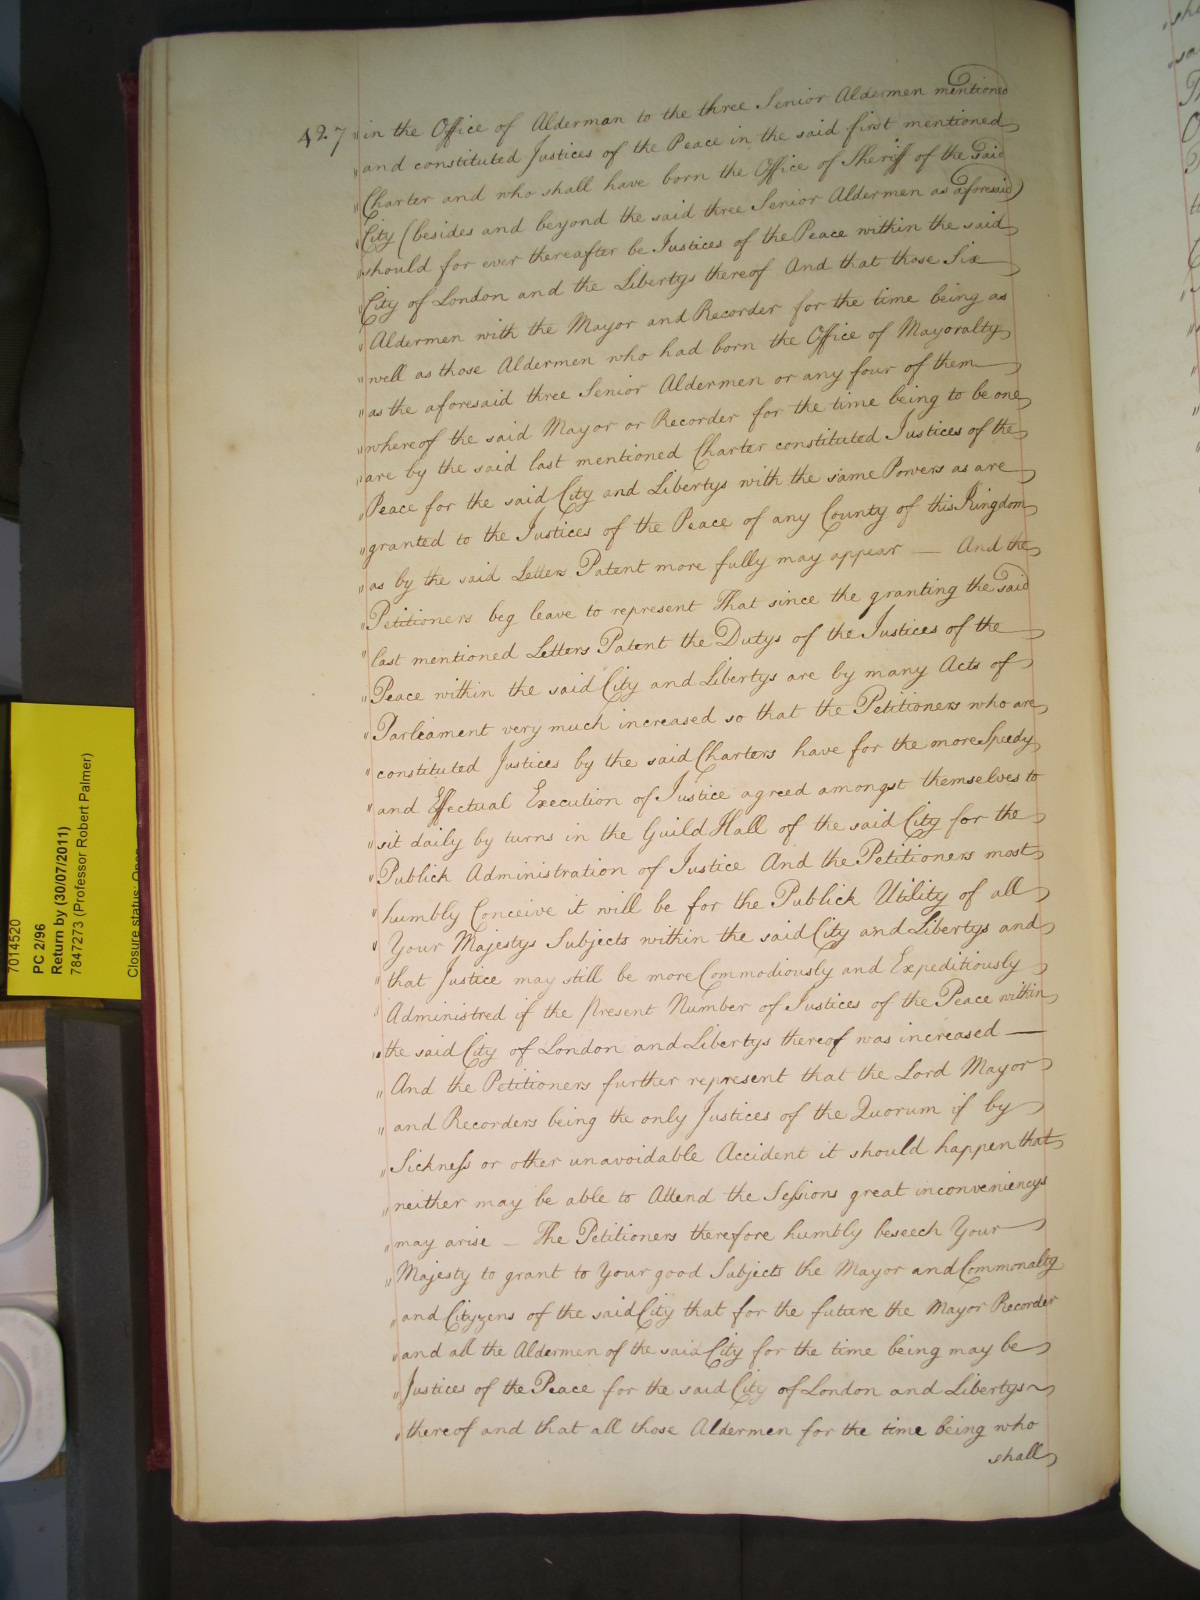 427 "in the Office of Alderman to the three Senior Aldermen mentioned
"and constituted Justices of the Peace in the said first mentioned
"Charter and who shall have born the Office of Sheriff of the said
"City (besides and beyond the said three Senior Aldermen as aforesaid)
"should for ever thereafter be Justices of the Peace within the said
"City of London and the Libertys thereof And that those Six
"Aldermen with the Mayor and Recorder for the time being as
"well as those Aldermen who had born the Office of Mayoralty
"as the aforesaid three Senior Aldermen or any four of them
"whereof the said Mayor or Recorder for the time being to be one
"are by the said last mentioned Charter constituted Justices of the
"Peace for the said City and Libertys with the same Powers as are
"granted to the Justices of the Peace of any County of this Kingdom
"as by the said Letters Patent more fully may appear — And the
"Petitioners beg leave to represent That since the granting the said
"last mentioned Letters Patent the Dutys of the Justices of the
"Peace within the said City and Libertys are by many Acts of
"Parliament very much increased so that the Petitioners who are
"constituted Justices by the said Charters have for the more Speedy
"and Effectual Execution of Justice agreed amongst themselves to
"sit daily by turns in the Guild Hall of the said City for the
"Publick Administration of Justice And the Petitioners most
"humbly Conceive it will be for the Publick Utility of all
"Your Majestys Subjects within the said City and Libertys and
"that Justice may still be more Commodiously and Expeditiously
"Administred if the present Number of Justices of the Peace within
"the said City of London and Libertys thereof was increased —
"And the Petitioners further represent that the Lord Mayor
"and Recorders being the only Justices of the Quorum if by
"Sickness or other unavoidable Accident it should happen that
"neither may be able to Attend the Sessions great inconveniencys
"may arise — The Petitioners therefore humbly beseech Your
"Majesty to grant to Your good Subjects the Mayor and Commonalty
"and Cityzens of the said City that for the future the Mayor Recorder
"and all the Aldermen of the said City for the time being may be
"Justices of the Peace for the said City of London and Libertys
"thereof and that all those Aldermen for the time being who
shall
7014520
PC 2/96
Return by (30/07/2011)
7847273 (Professor Robert Palmer)
Closure status: Open